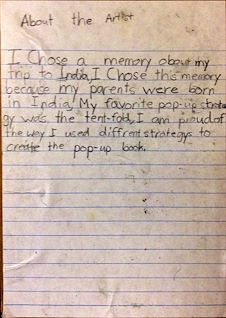 About the Artist
I Chose a memory about my
trip to India, I Chose this memory
because my parents were born
in India, My favorite pop-up strate
gy was the tent-fold, I am proud of
the way I used diffrent strategys to
create the pop-up book.